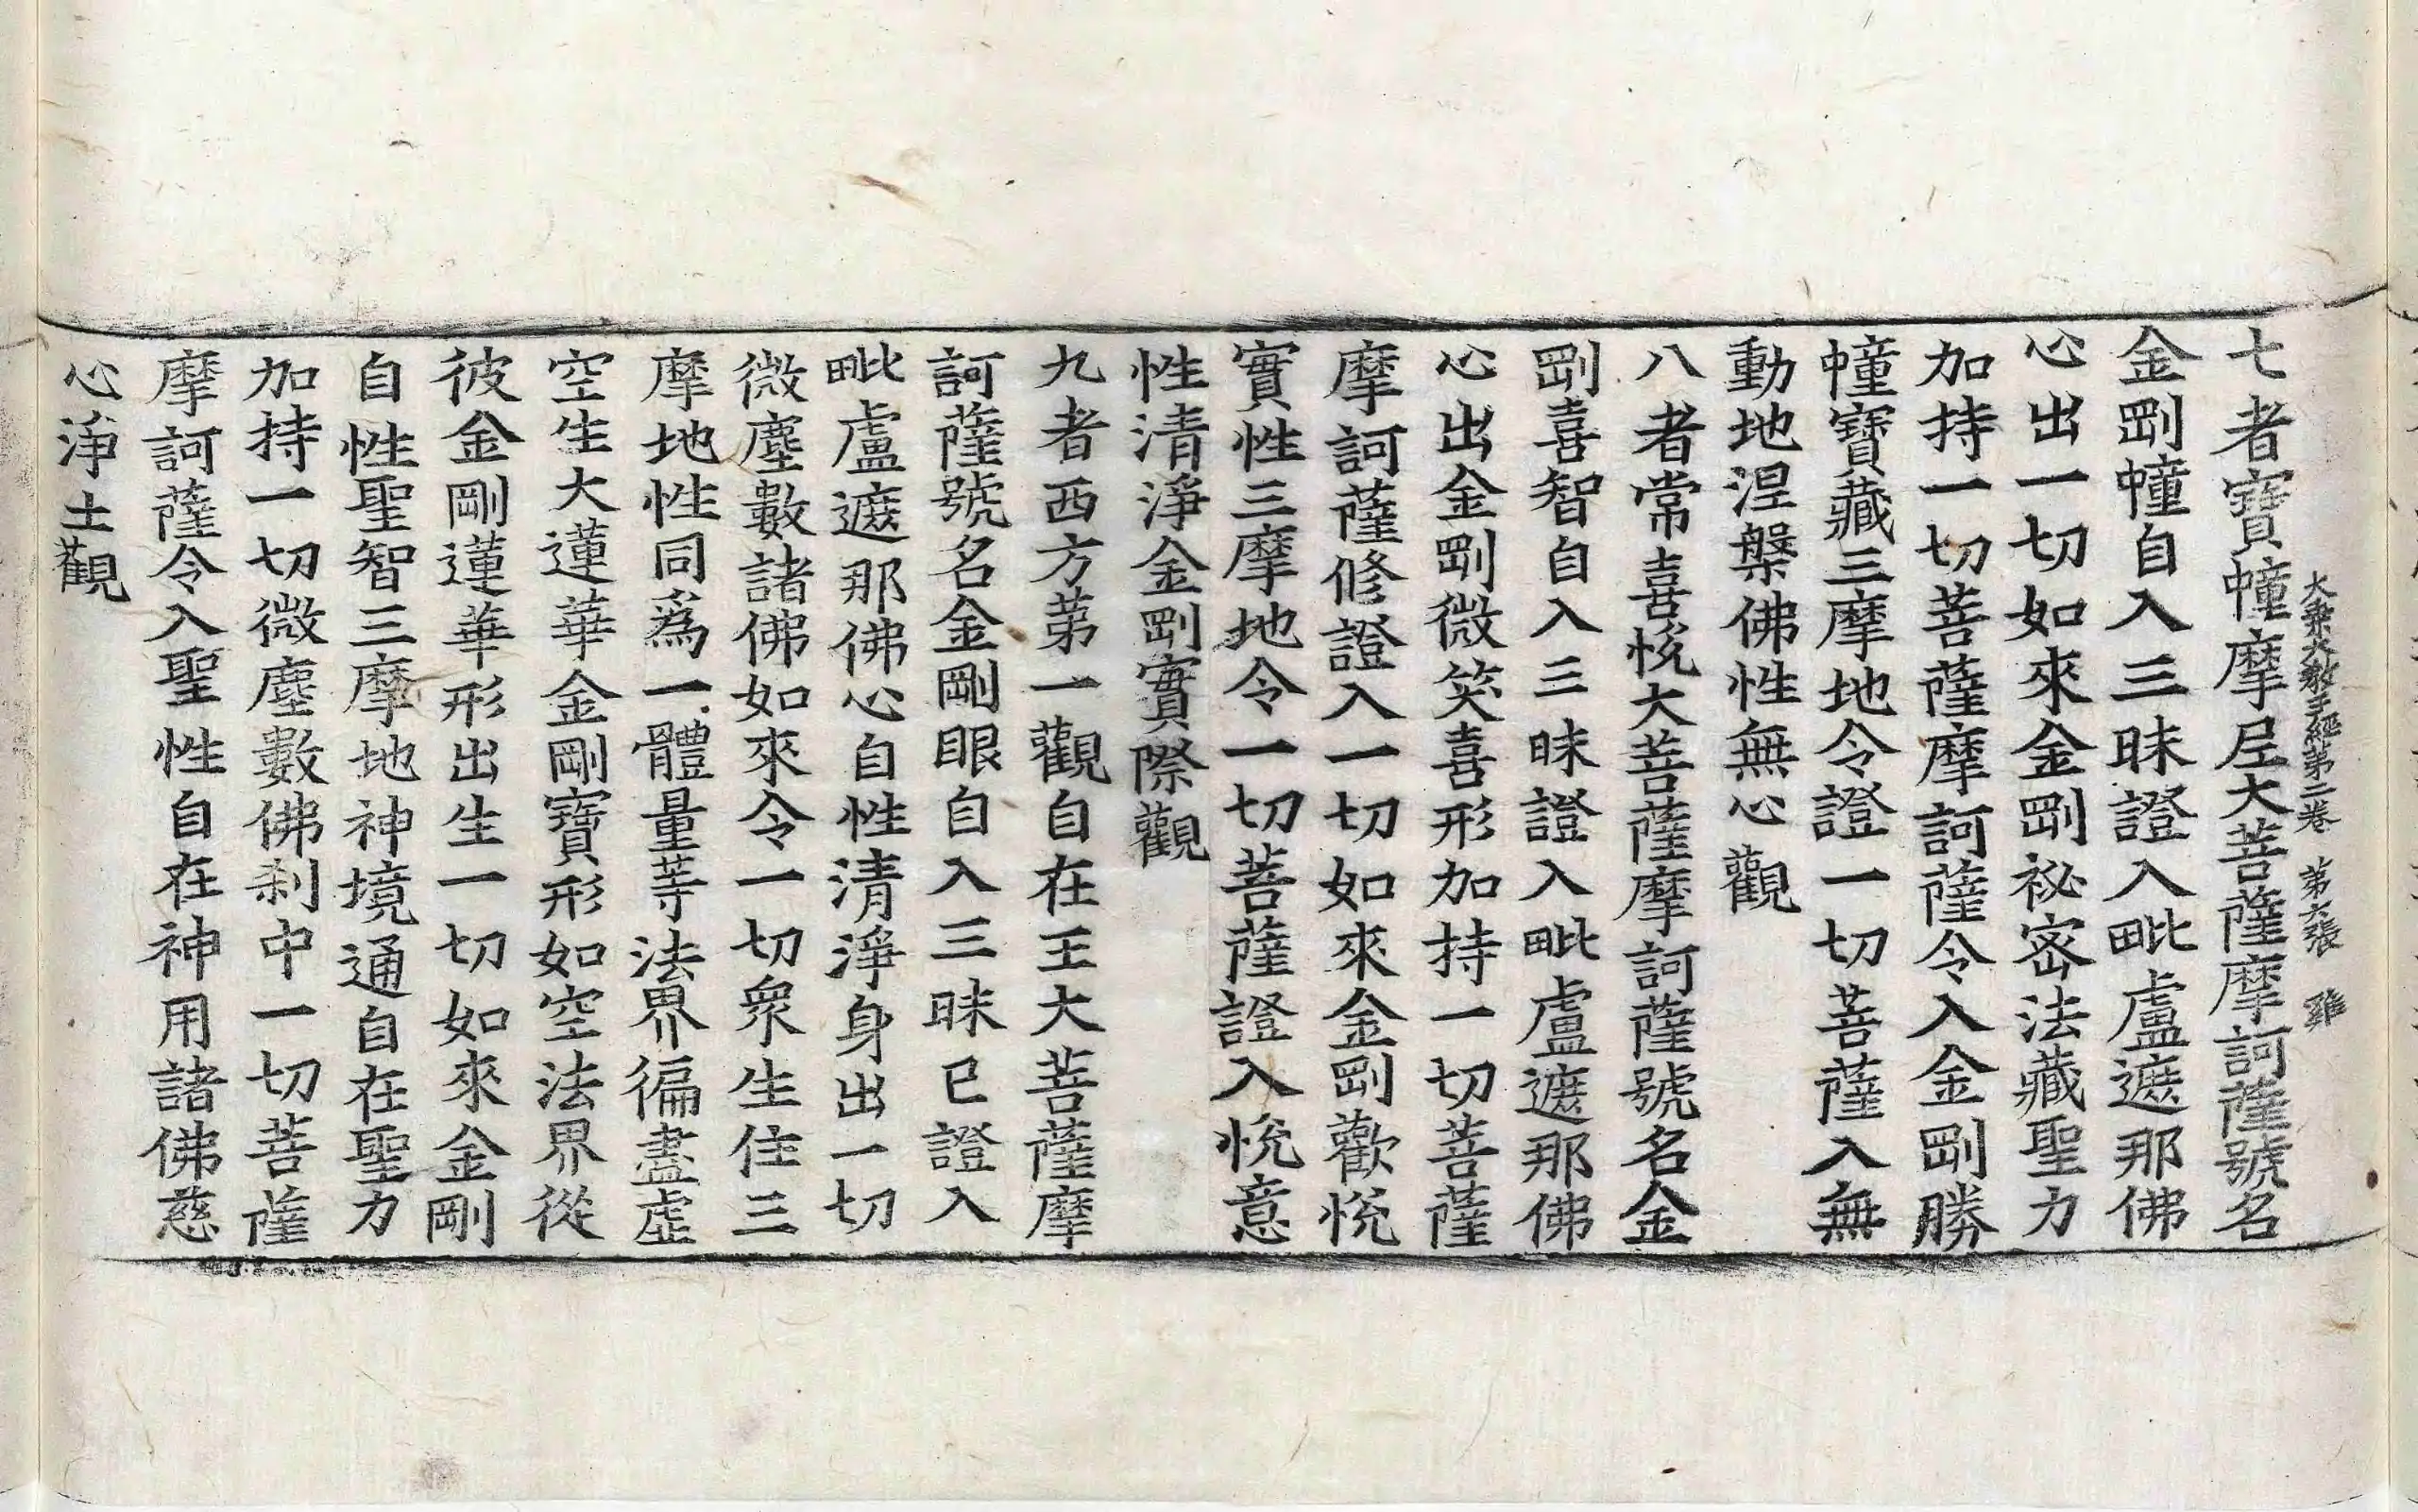 大乘大教王經第二卷　第六張　雞
七者寶幢摩尼大菩薩摩訶薩號名
金剛幢自入三昧證入毗盧遮那佛
心出一切如來金剛祕密法藏聖力
加持一切菩薩摩訶薩令入金剛勝
幢寶藏三摩地令證一切菩薩入無
動地涅槃佛性無心觀
八者常喜悅大菩薩摩訶薩號名金
剛喜智自入三昧證入毗盧遮那佛
心出金剛微笑喜形加持一切菩薩
摩訶薩修證入一切如來金剛歡悅
實性三摩地令一切菩薩證入悅意
性清淨金剛實際觀
九者西方第一觀自在王大菩薩摩
訶薩號名金剛眼自入三昧已證入
毗盧遮那佛心自性清淨身出一切
微塵數諸佛如來令一切眾生住三
摩地性同爲一體量等法界徧盡虛
空生大蓮華金剛寶形如空法界從
彼金剛蓮華形出生一切如來金剛
自性聖智三摩地神境通自在聖力
加持一切微塵數佛剎中一切菩薩
摩訶薩令入聖性自在神用諸佛慈
心淨土觀